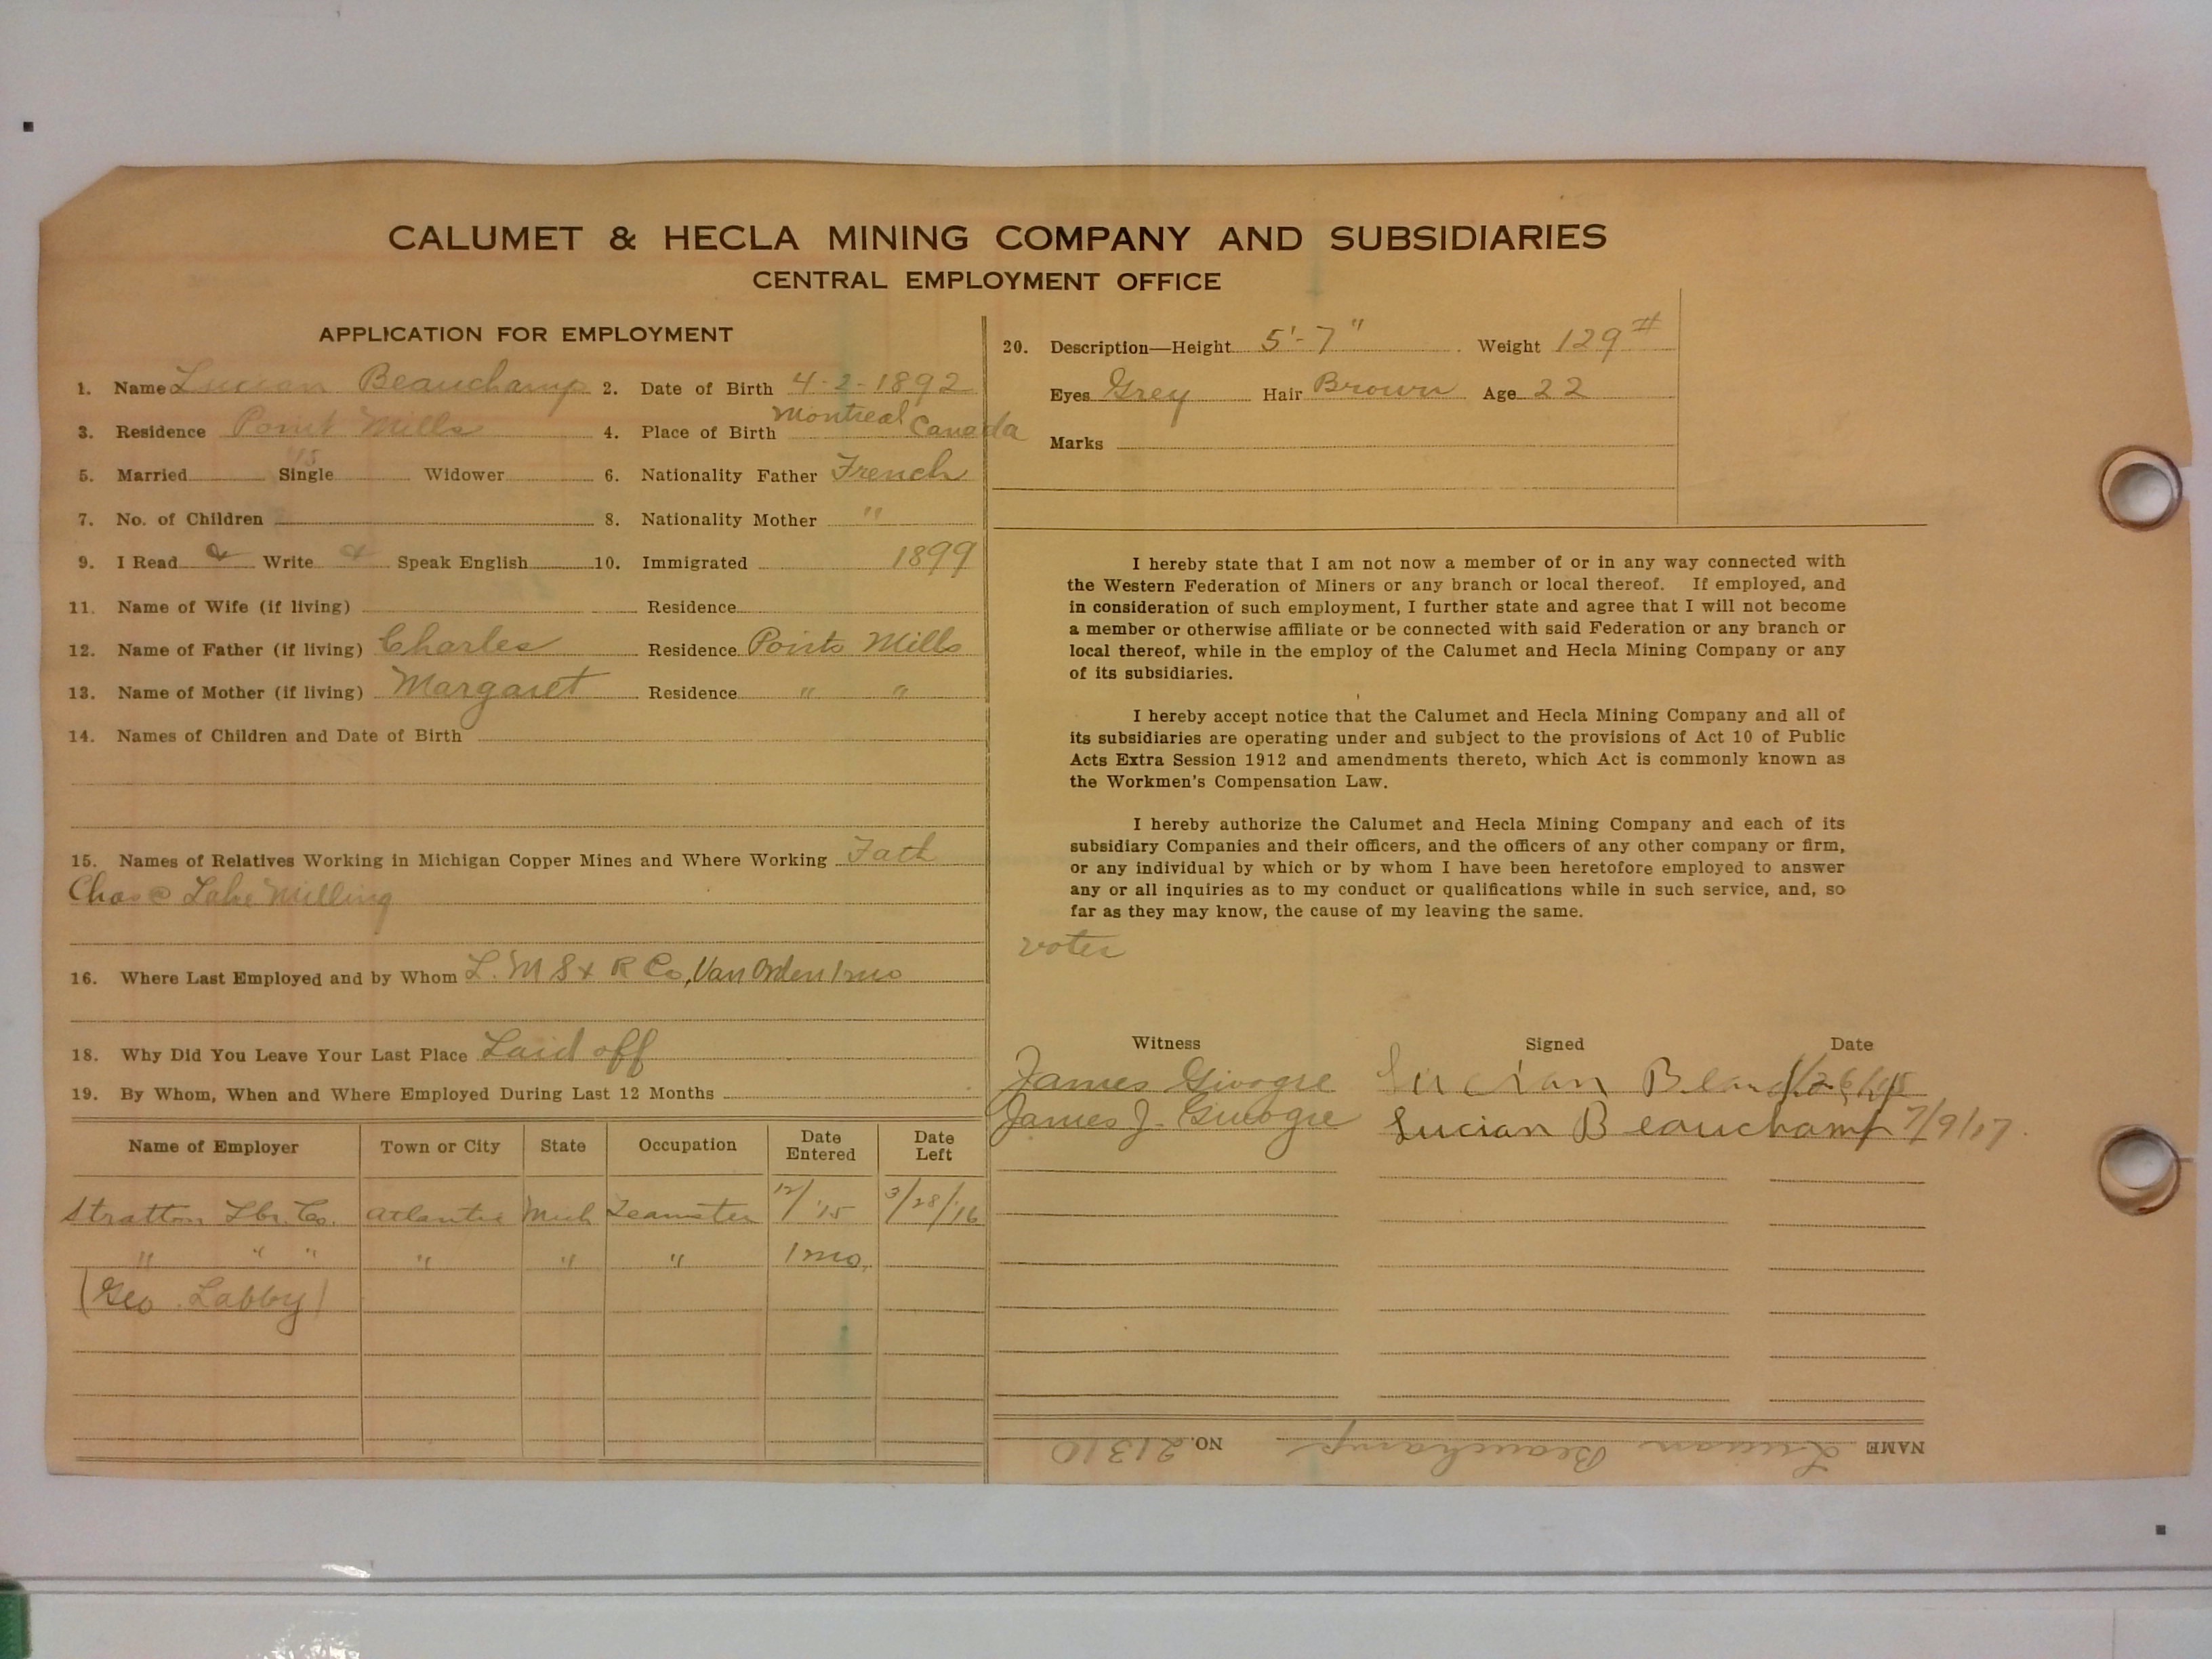 CALUMET & HECLA MINING COMPANY AND SUBSIDIARIES
CENTRAL EMPLOYMENT OFFICE
APPLICATION FOR EMPLOYMENT
1. Name Lucian Beauchamp 2. Date of Birth 4-2-1892
3. Residence Point Mills 4. Place of Birth Montreal Canada
5. Married Single Widower 6. Nationality Father French
7. No. of Children 8. Nationality Mother "
9. I Read Write Speak English 10. Immigrated 1899
11. Name of Wife (if living) Residence
12. Name of Father (if living) Charles Residence Points Mills
13. Name of Mother (if living) Margaret Residence " "
14. Names of Children and Date of Birth
15. Names of Relatives Working in Michigan Copper Mines and Where Working Fath
Chas @ Lake Milling
16. Where Last Employed and by Whom L. M S & R Co, Van Orden 1 mo
18. Why Did You Leave Your Last Place Laid off
19. By Whom, When and Where Employed During Last 12 Months
Name of Employer Town or City State Occupation Date Entered Date Left
Stratton Lbr. Co. Atlantic Mich Teamster 12/'15 3/28/'16
" " " " " " 1 mo.
(Geo. Labby)
20. Description—Height 5'-7" Weight 129#
Eyes Grey Hair Brown Age 22
Marks
I hereby state that I am not now a member of or in any way connected with
the Western Federation of Miners or any branch or local thereof. If employed, and
in consideration of such employment, I further state and agree that I will not become
a member or otherwise affiliate or be connected with said Federation or any branch or
local thereof, while in the employ of the Calumet and Hecla Mining Company or any
of its subsidiaries.
I hereby accept notice that the Calumet and Hecla Mining Company and all of
its subsidiaries are operating under and subject to the provisions of Act 10 of Public
Acts Extra Session 1912 and amendments thereto, which Act is commonly known as
the Workmen's Compensation Law.
I hereby authorize the Calumet and Hecla Mining Company and each of its
subsidiary Companies and their officers, and the officers of any other company or firm,
or any individual by which or by whom I have been heretofore employed to answer
any or all inquiries as to my conduct or qualifications while in such service, and, so
far as they may know, the cause of my leaving the same.
voter
Witness Signed Date
James Givogre Lucian
James J. Givogre Lucian Beauchamp 7/9/17.
NAME Lucian Beauchamp NO. 21310